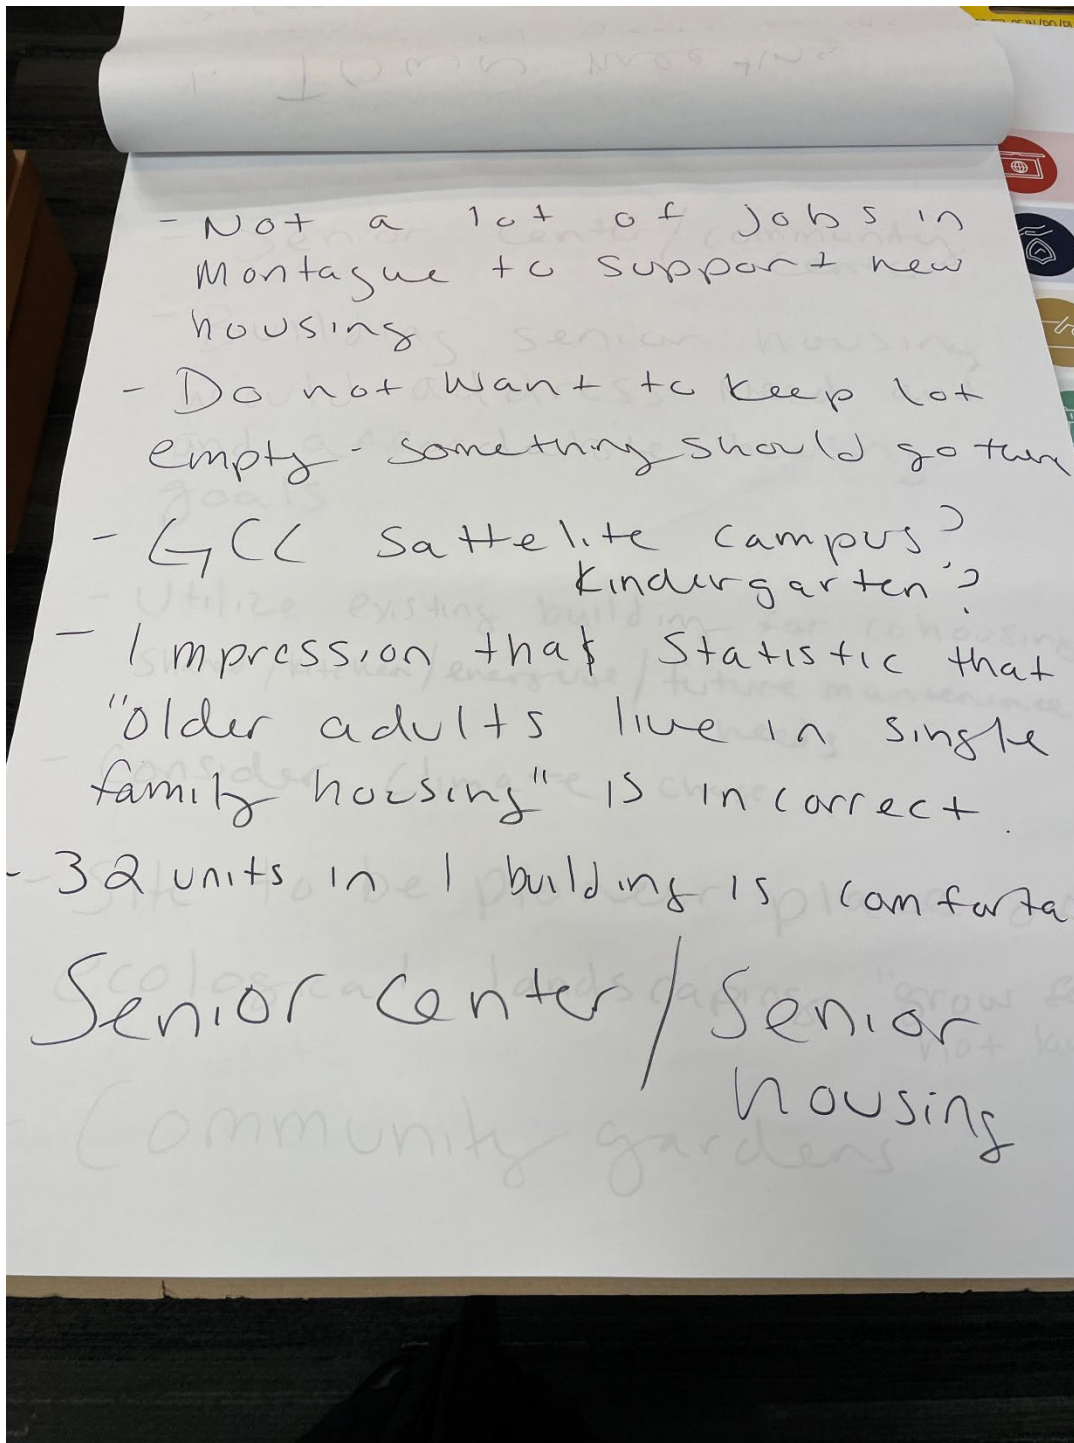 - Not a lot of jobs in
Montague to support new
housing
- Do not want to keep lot
empty - something should go there
- GCC Sattelite campus?
Kindergarten?
- Impression that Statistic that
"older adults live in single
family housing" is incorrect.
- 32 units in 1 building is comforta
Senior Center / Senior
housing